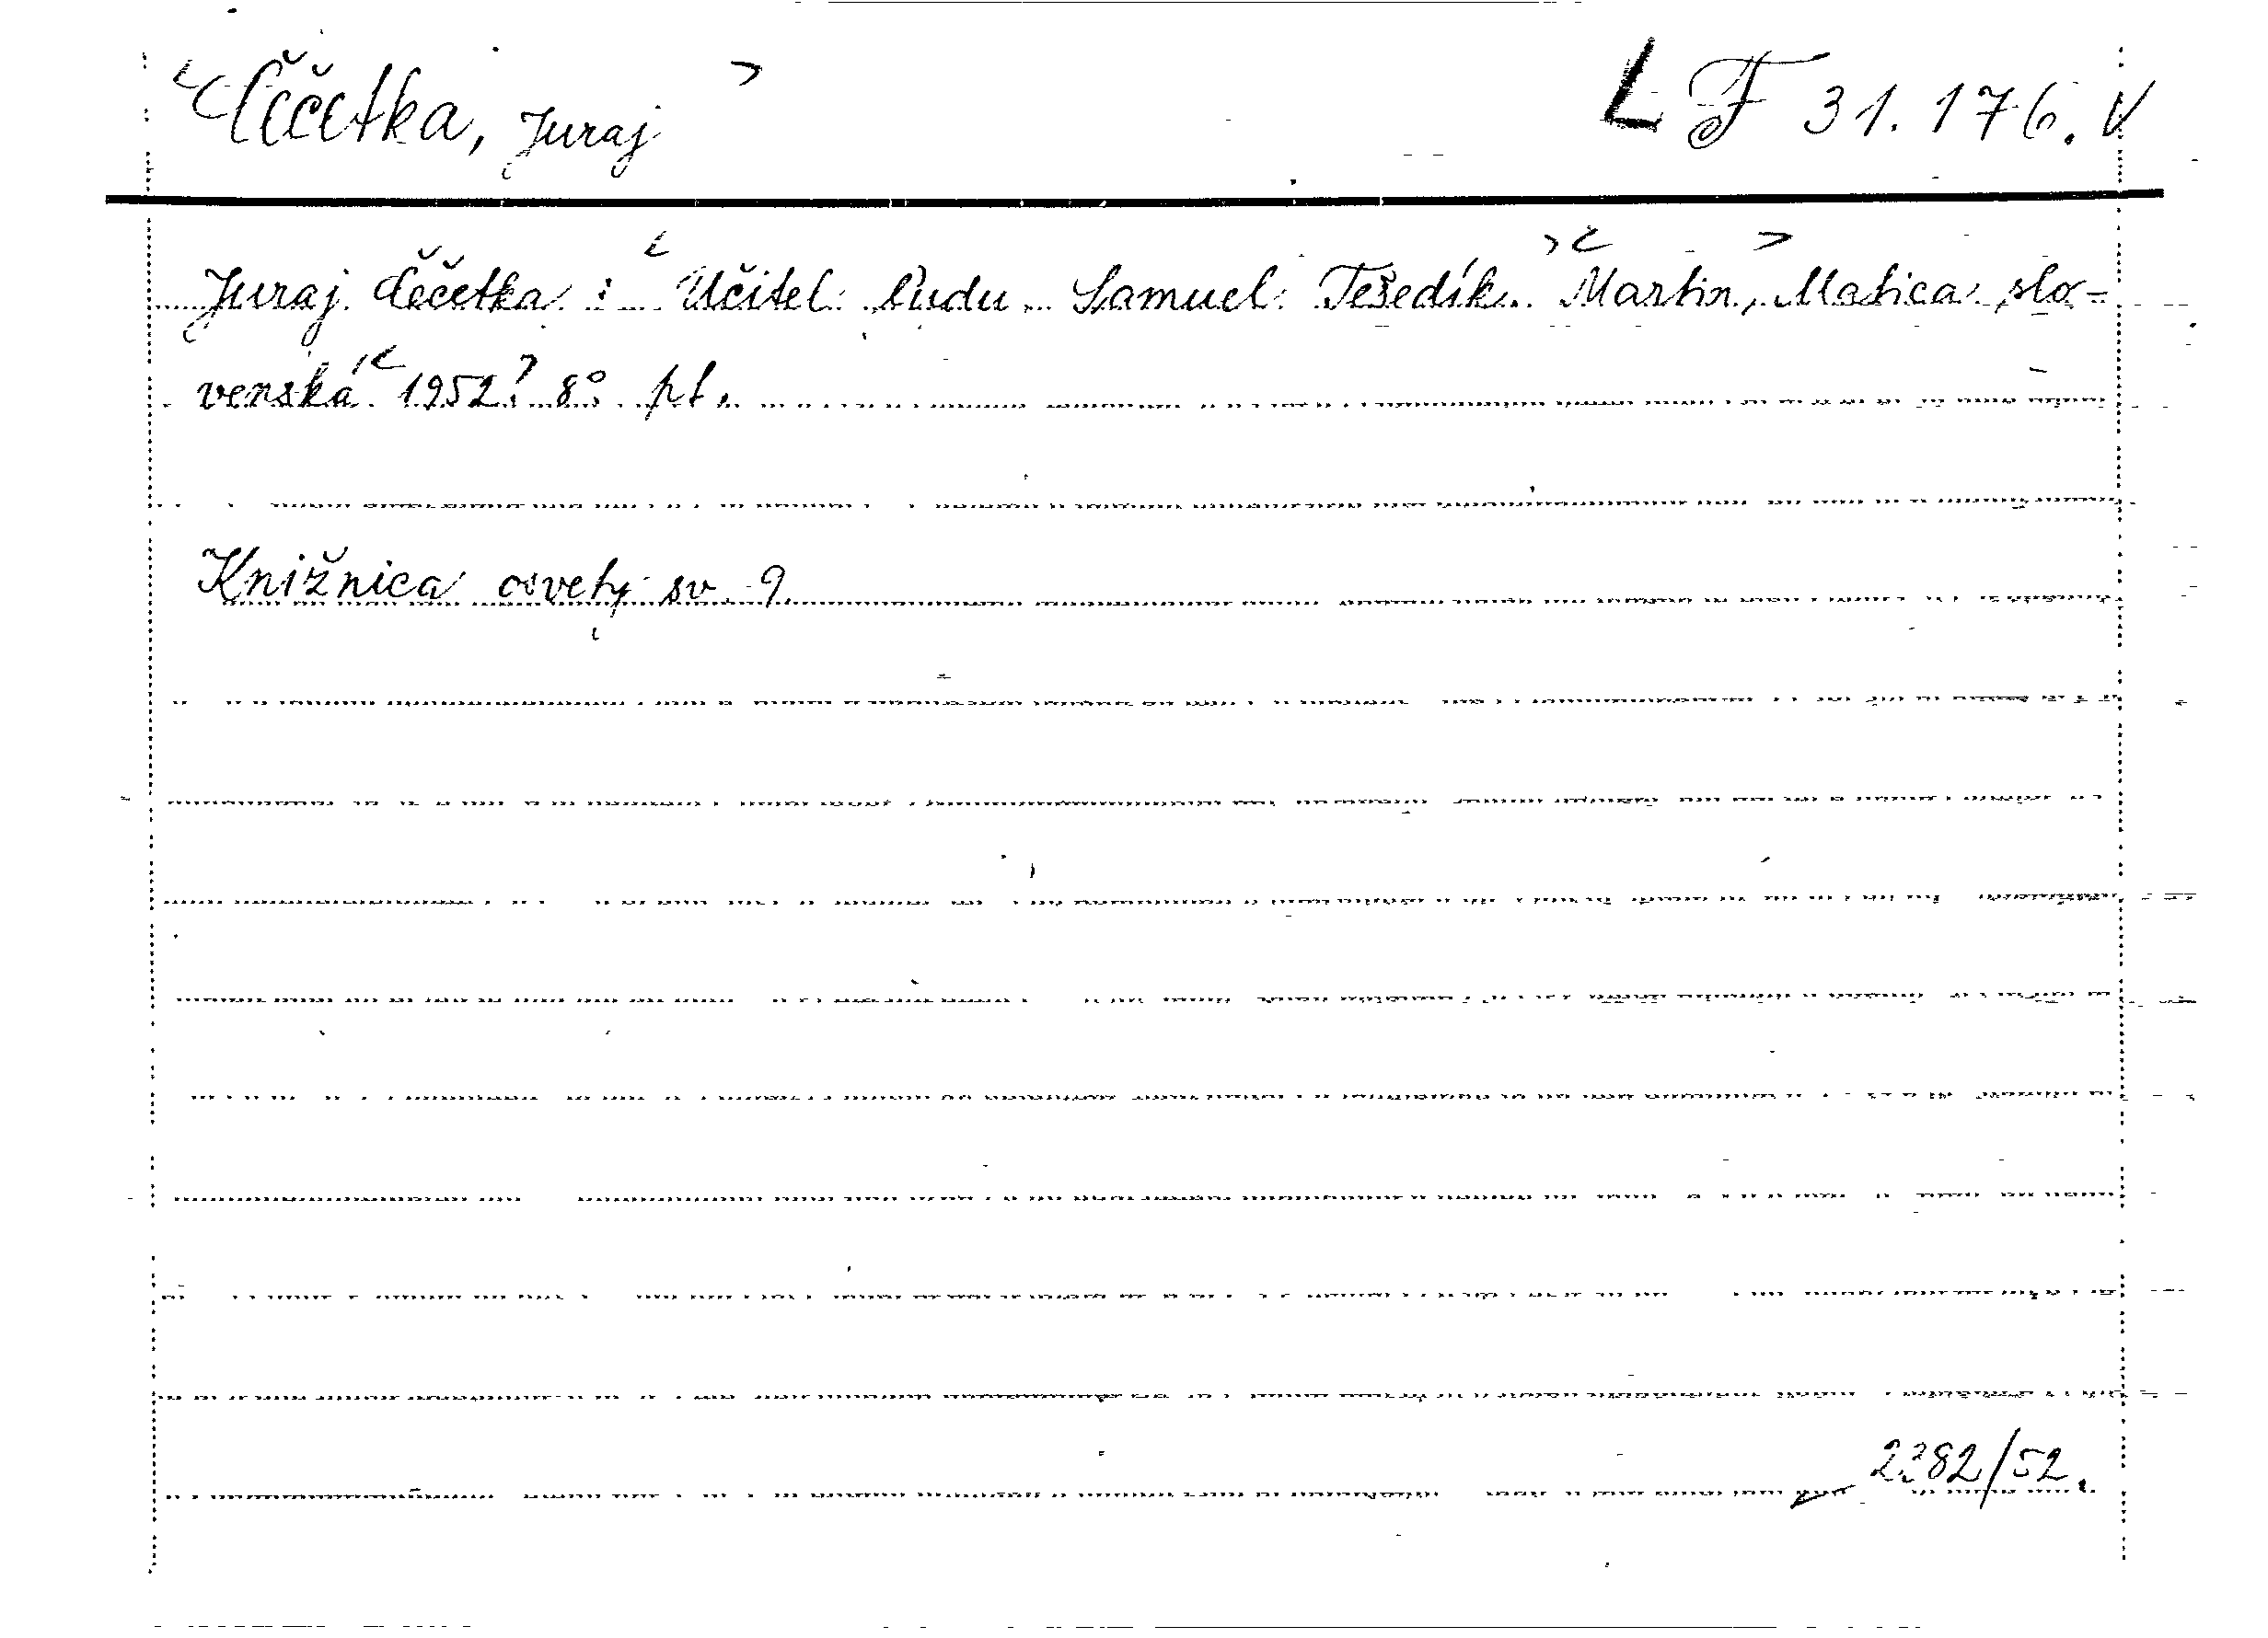 Čečetka, Juraj L F 31.176. V
Juraj Čečetka : Učitel ľudu Samuel Tešedík. Martin, Matica slo-
venská 1952. 8° pl.
Knižnica osvety sv. 9.
2382/52.